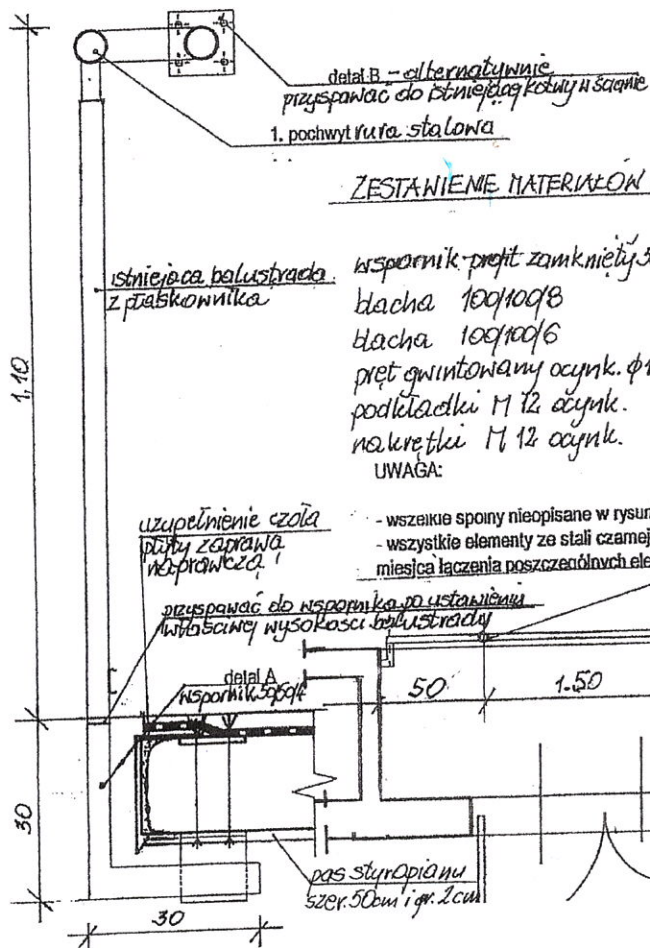 detal B - alternatywnie
przyspawać do istniejącej kotwy w ścianie
1. pochwyt rura stalowa
ZESTAWIENIE MATERIAŁÓW
istniejąca balustrada
z płaskownika
wspornik-profil zamknięty 5
blacha 100/100/8
blacha 100/100/6
pręt gwintowany ocynk. φ1
podkładki M 12 ocynk.
nakrętki M 12 ocynk.
UWAGA:
1,10
uzupełnienie czoła
płyty zaprawą
naprawczą
- wszelkie spoiny nieopisane w rysun
- wszystkie elementy ze stali czarnej
miesjca łączenia poszczególnych ele
przyspawać do wspornika po ustawieniu
właściwej wysokości balustrady
detal A
wspornik 50/50/4
50
1.50
30
pas styropianu
szer. 50cm i gr. 2cm
30